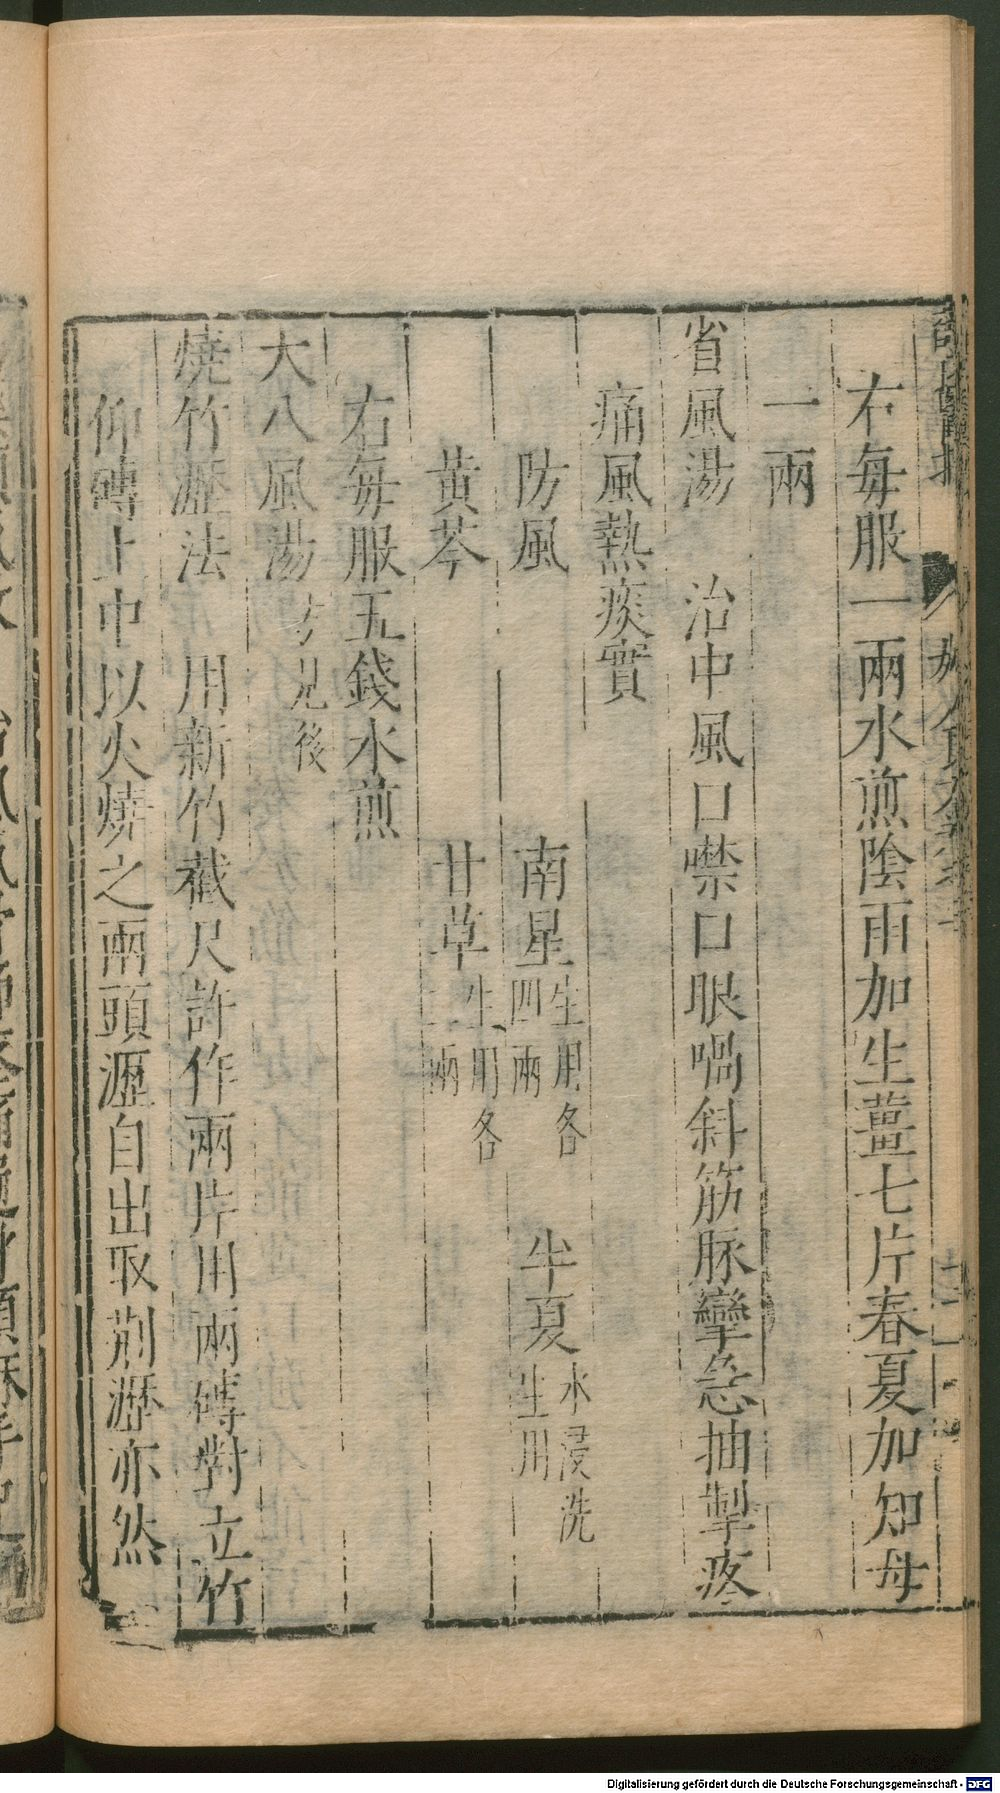 右每服一兩水煎陰雨加生薑七片春夏加知母
一兩
省風湯 治中風口噤口眼喎斜筋脉攣急抽掣疼
痛風熱痰實
防風 南星生用各四兩 半夏水浸洗生用
黃芩 甘草生用各二兩
右每服五錢水煎
大八風湯方見後
燒竹瀝法 用新竹截尺許作兩片用兩磚對立竹
仰磚上中以火燒之兩頭瀝自出取荊瀝亦然
Digitalisierung gefördert durch die Deutsche Forschungsgemeinschaft - DFG